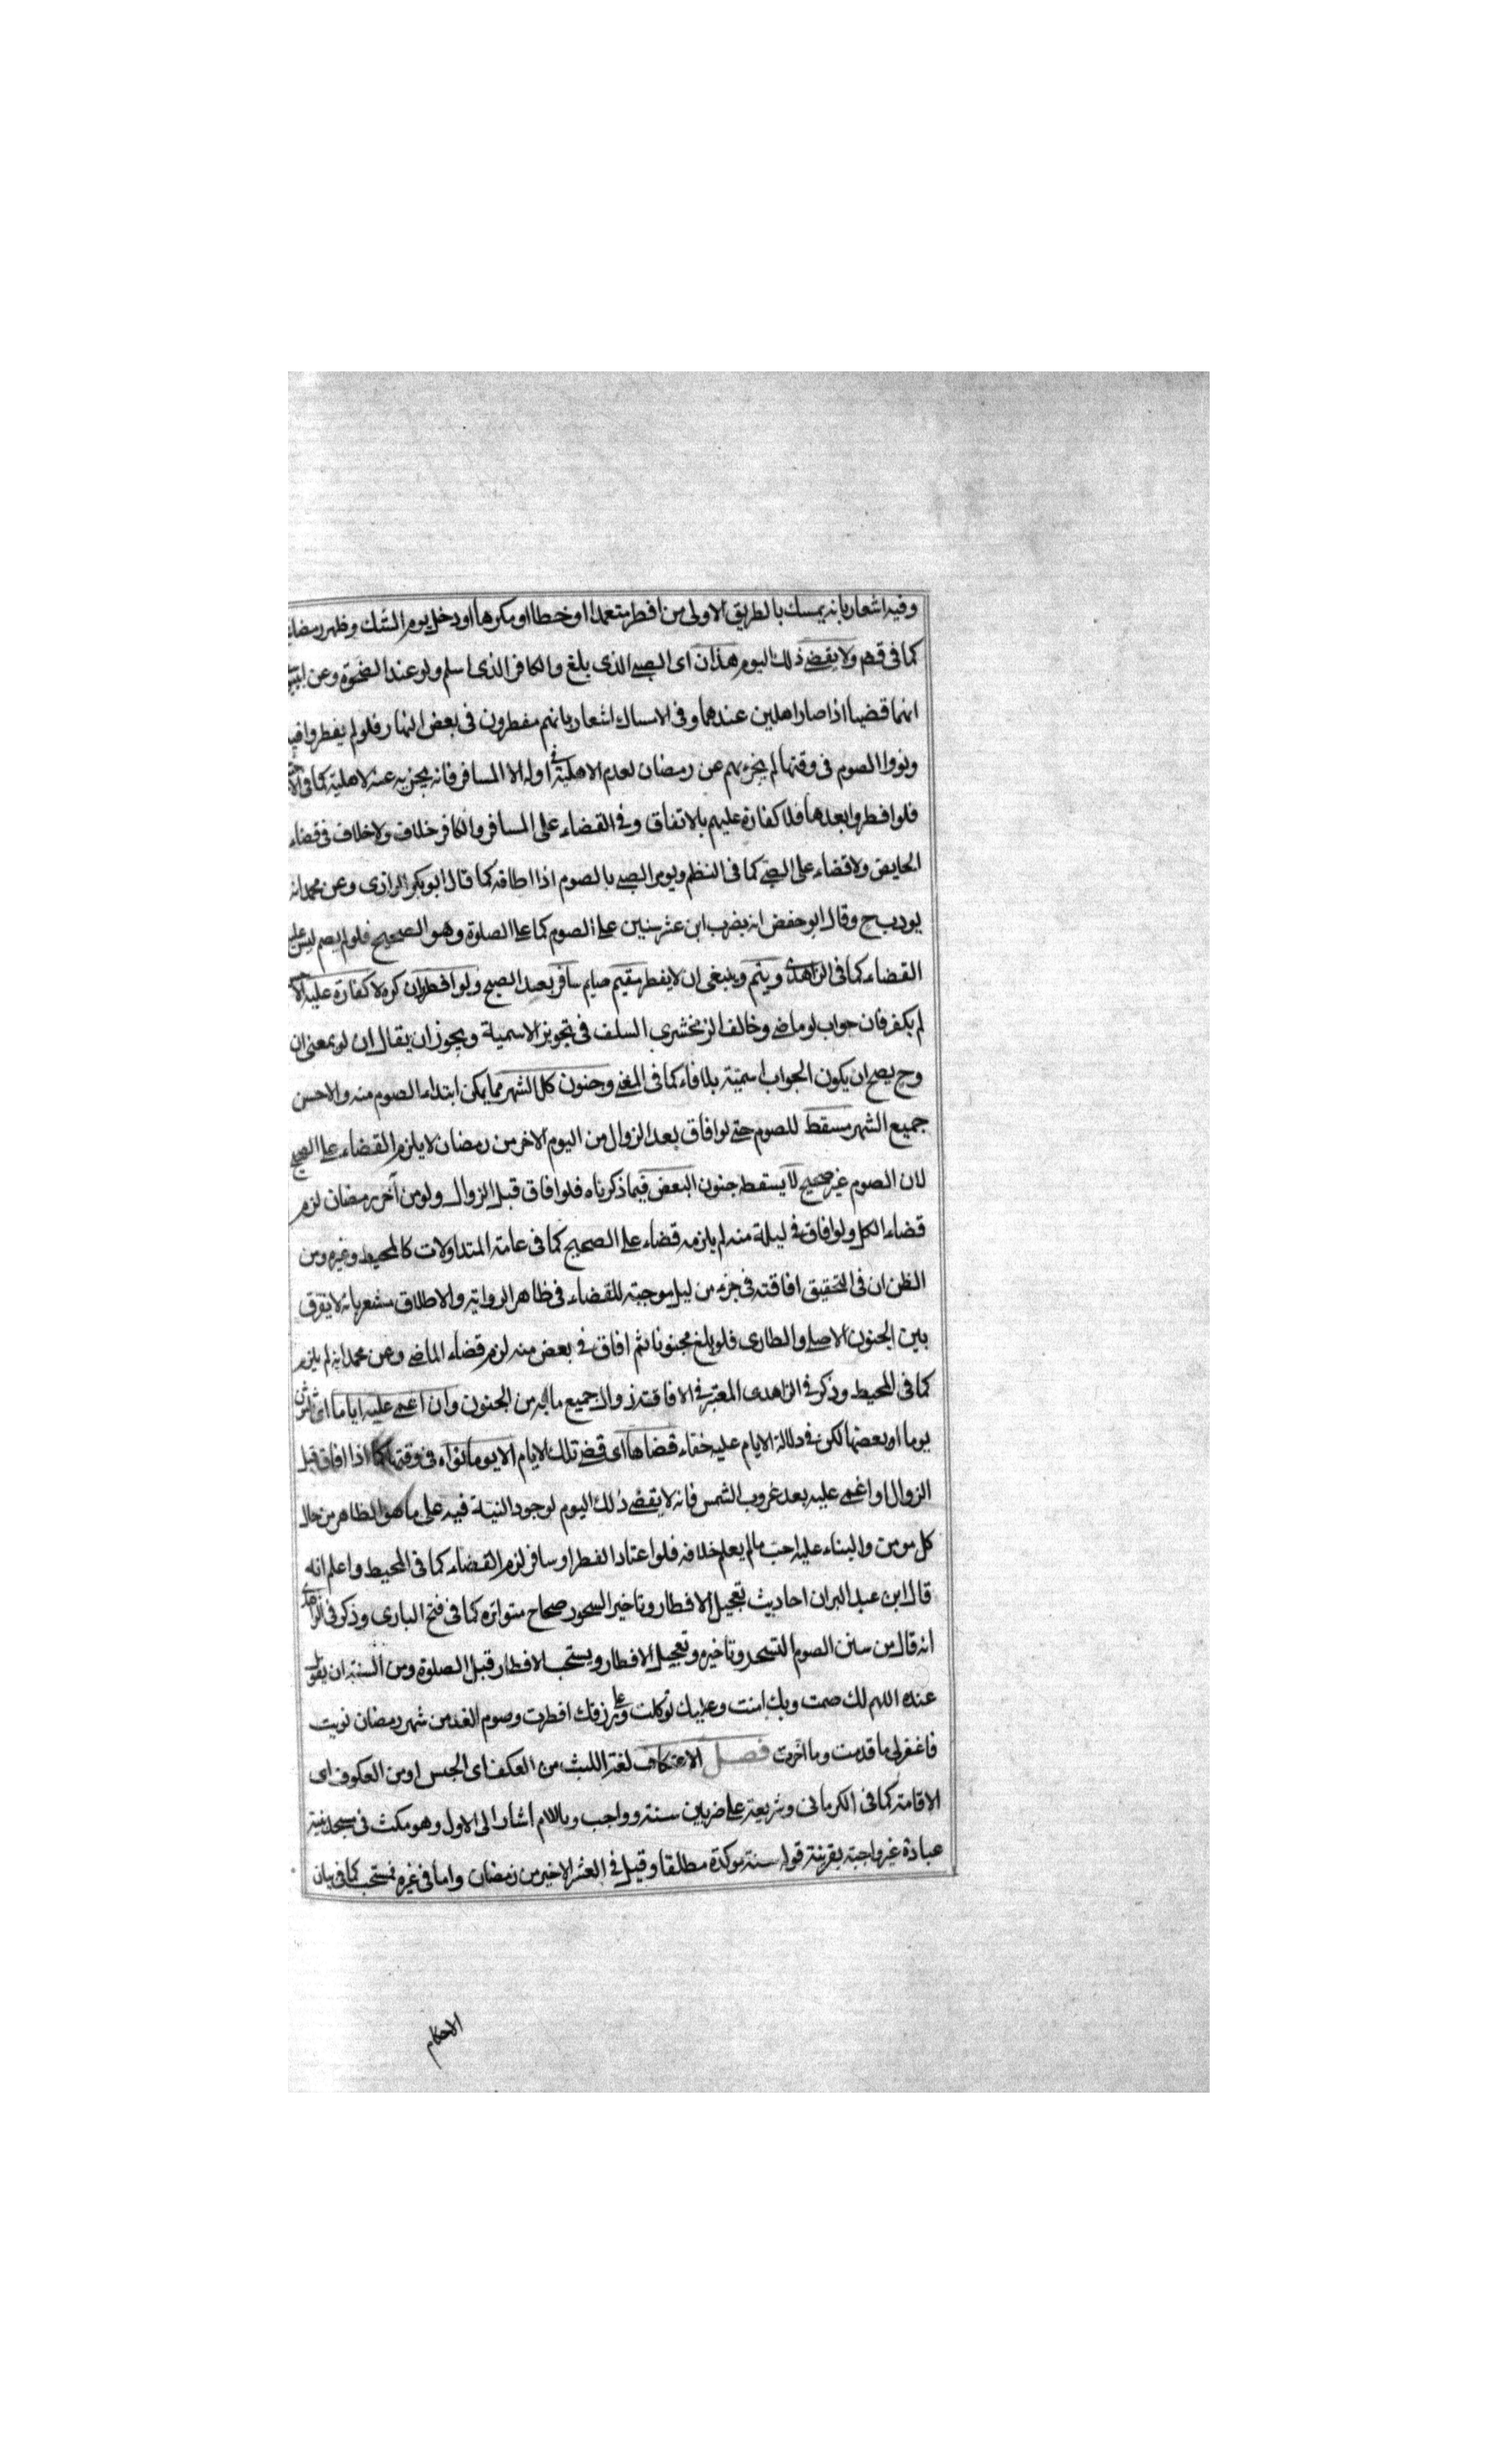 وفيه اشعار بانه يمسك بالطريق الاولى من افطر متعمدا او خطا او مكرها او دخل يوم الشك وظهر رمضان
كما فى قهم ولا يقضى ذلك اليوم هذان اى الصبى الذى بلغ والكافر الذى اسلم ولو عند الضحوة وعن
انهما قضيا اذا صارا هلين عندهما وفى الامساك اشعار بانهم مفطرون فى بعض النهار فلو لم يفطروا فيه
ونووا الصوم فى وقتها لم يجزءهم عن رمضان لعدم الاهلية فى اوله الا المسافر فانه يجزيه عنه لاهلية كما فى
فلو افطروا بعدها فلا كفارة عليهم بالاتفاق وفى القضاء على المسافر والكافر خلاف ولا خلاف فى قضاء
الحايض ولا قضاء على الصبى كما فى النظم ويومر الصبى بالصوم اذا اطاقه كما قال ابو بكر الرازى وعن محمد انه
يودب ح وقال ابو حفض انه يضرب ابن عشر سنين على الصوم كما على الصلوة وهو الصحيح فلو لم يصم ليس عليه
القضاء كما فى الزاهدى ويتم وينبغى ان لا يفطر مقيم صايم سافر بعد الصبح ولو افطر ان كره لا كفارة عليه
لم يكفر فان جواب لو ماضى وخالف الزمخشرى السلف فى تجويز الاسمية ويجوز ان يقال ان لو بمعنى ان
وح يصح ان يكون الجواب اسمية بلا فاء كما فى المغنى وجنون كل الشهر مما يمكن ابتداء الصوم منه والاحسن
جميع الشهر مسقط للصوم حتى لو افاق بعد الزوال من اليوم الاخر من رمضان لا يلزم القضاء على الصحيح
لان الصوم غير صحيح لا يسقط جنون البعض فيما ذكرناه فلو افاق قبل الزوال ولو من آخر رمضان لزم
قضاء الكل ولو افاق فى ليلة منه لم يلزمه قضاء على الصحيح كما فى عامة المتداولات كالمحيط وغيره ومن
الظن ان فى التحقيق افاقته فى جزء من ليل موجبة للقضاء فى ظاهر الرواية والاطلاق مشعر بانه لا يفرق
بين الجنون الاصلى والطارى فلو بلغ مجنونا ثم افاق فى بعض منه لزم قضاء الماضى وعن محمد انه لم يلزم
كما فى المحيط وذكر فى الزاهدى المعتبر فى الافاقة زوال جميع ما به من الجنون وان اغمى عليه اياما اى ثلثون
يوما او بعضها لكن فى دلالة الايام عليه خفاء قضاها اى قضى تلك الايام الا يوما نواه فى وقتها كما اذا افاق قبل
الزوال او اغمى عليه بعد غروب الشمس فانه لا يقضى ذلك اليوم لوجود النية فيه على ما هو الظاهر من حال
كل مومن والبناء عليه احب ما لم يعلم خلافه فلو اعتاد الفطر او سافر لزم القضاء كما فى المحيط واعلم انه
قال ابن عبد البر ان احاديث تعجيل الافطار وتاخير السحور صحاح متواتره كما فى فتح البارى وذكر فى الزاهدى
انه قال من سنن الصوم التسحر وتاخيره وتعجيل الافطار ويستحب الافطار قبل الصلوة ومن السنة ان يقول
عنده اللهم لك صمت وبك امنت وعليك توكلت وعلى رزقك افطرت وصوم الغد من شهر رمضان نويت
فاغفر لى ما قدمت وما اخرت فصل الاعتكاف لغة اللبث من العكف اى الحبس او من العكوف اى
الاقامة كما فى الكرمانى وشريعة على ضربين سنة وواجب وباللام اشار الى الاول وهو مكث فى مسجد بنية
عبادة غير واجبة بقرينة قوله سنة موكدة مطلقا وقيل فى العشر الاخير من رمضان واما فى غيره فمستحب كما فى بيان
الاحكام